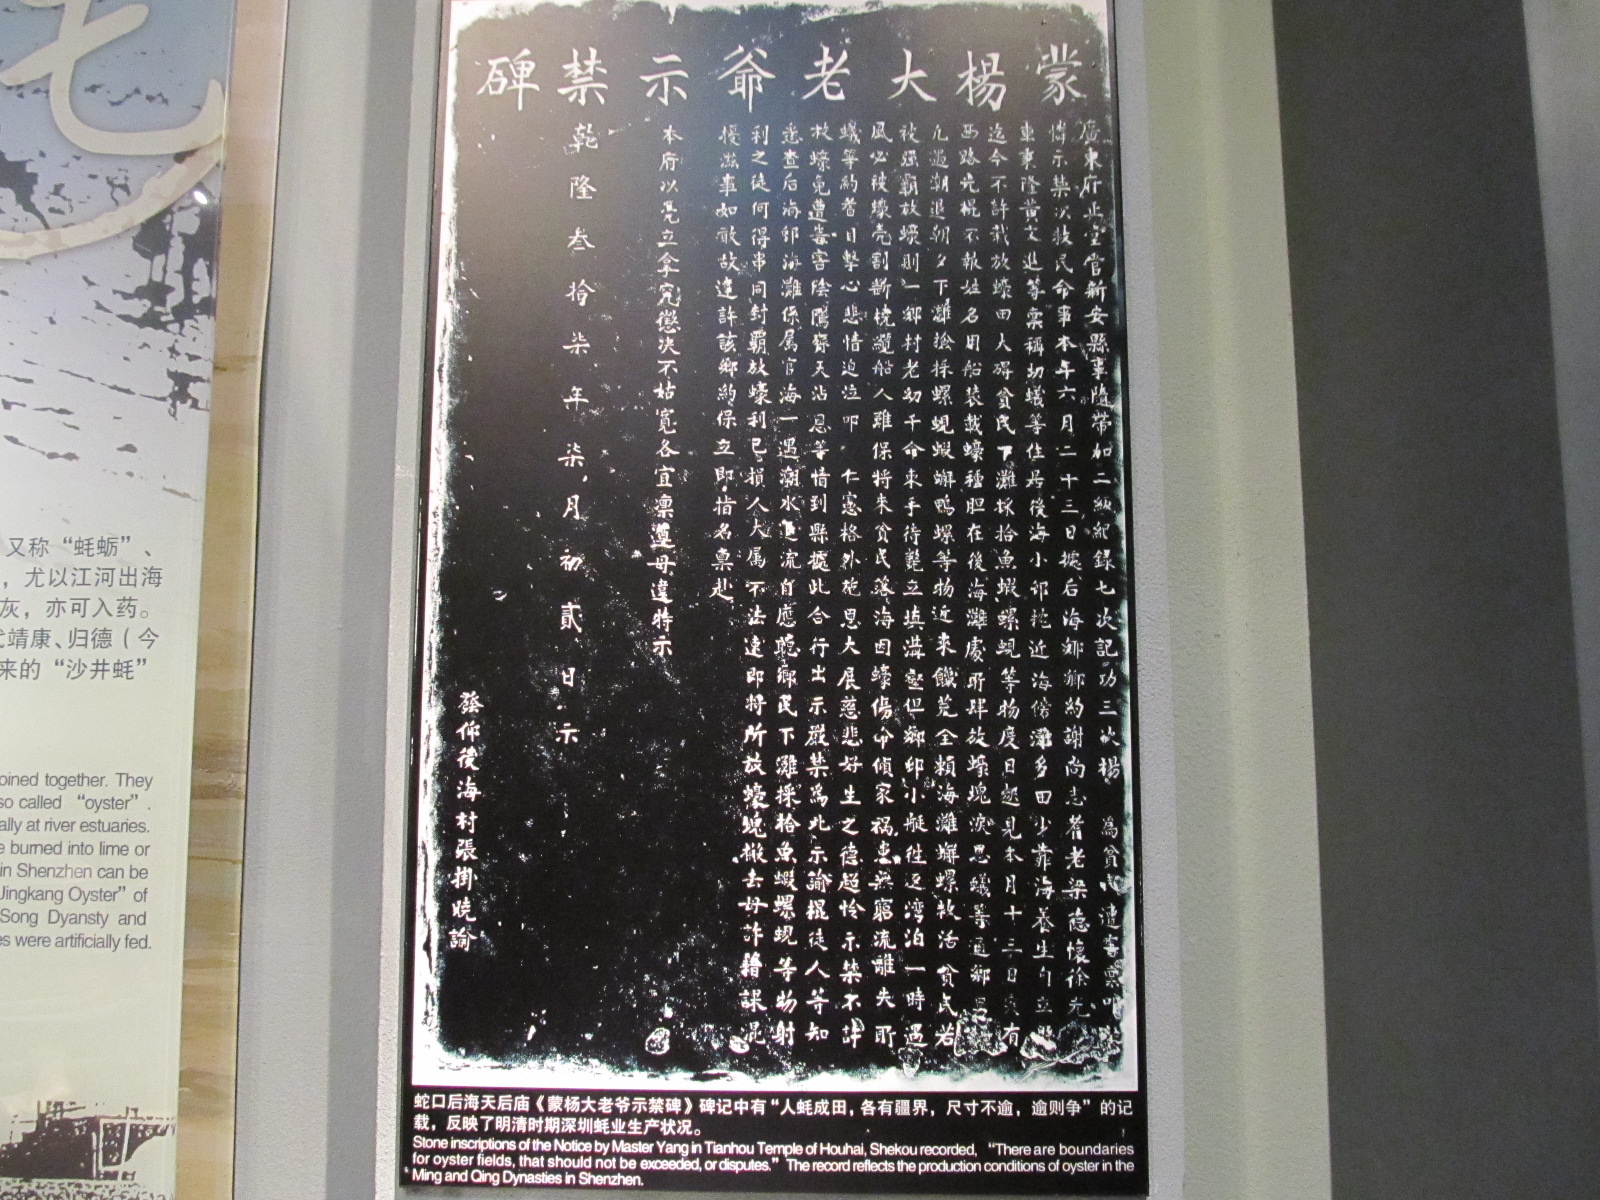 蒙楊大老爺示禁碑
廣東府正堂管新安縣事隨帶加二級紀錄七次記功三次楊 為貧民遭害
示禁次救民命事本年六月二十三日據后海鄉鄉約謝尚志耆老梁德懷徐光
車東隆黃文進等稟稱切蟻等住居後海小邨挖近海傍潮多田少靠海養生
迄今不許栽放蠔田大碍貧民下灘採拾魚蝦螺蜆等物度日延見本月十三日突有
西路光棍不報姓名用船裝載蠔種胆在後海灘處所肆放蠔塊淚思蟻等通鄉
凡遇潮退朝夕下灘撿採螺蜆蝦鴨螺等物近來饑荒全賴海灘螺救活貧民若
被强霸放蠔則一鄉村老幼千命束手待斃立填溝壑但鄉邨小艇徃返湾泊一時遇
風必被蠔壳割斷橈纜船人難保將來貧民落海因蠔傷命傾家禍患無窮流離失所
蟻等約耆目擊心悲情迫泣叩 仁憲格外施恩大展慈悲好生之德超怜示禁不許
放蠔免遭毒害陰隲齊天沾恩等情到縣據此合行出示嚴禁為此示諭棍徒人等知
悉查后海邨海灘係屬官海一遇潮水退流自應聽鄉民下灘採拾魚蝦螺蜆等物射
利之徒何得串同討霸放蠔利己損人大属不法速即將所放蠔搬去毋許藉謀混
擾滋事如敢故違許該鄉約保立即指名稟赴
本府以凭立拿究懲决不姑寬各宜凛遵毋違特示
乾隆叁拾柒年柒月初貳日示
發仰後海村張掛曉諭
又称“蚝蛎”、
，尤以江河出海
灰，亦可入药。
靖康、归德（今
来的“沙井蚝”
oined together. They
so called “oyster”.
ally at river estuaries.
e burned into lime or
in Shenzhen can be
Jingkang Oyster” of
Song Dyansty and
es were artificially fed.
蛇口后海天后庙《蒙杨大老爷示禁碑》碑记中有“人蚝成田，各有疆界，尺寸不逾，逾则争”的记
载，反映了明清时期深圳蚝业生产状况。
Stone inscriptions of the Notice by Master Yang in Tianhou Temple of Houhai, Shekou recorded, “There are boundaries
for oyster fields, that should not be exceeded, or disputes.” The record reflects the production conditions of oyster in the
Ming and Qing Dynasties in Shenzhen.